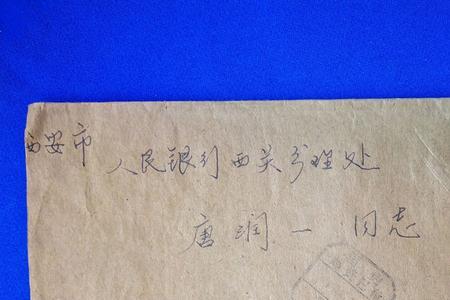 西安市
人民银行西关分理处
唐润一 同志